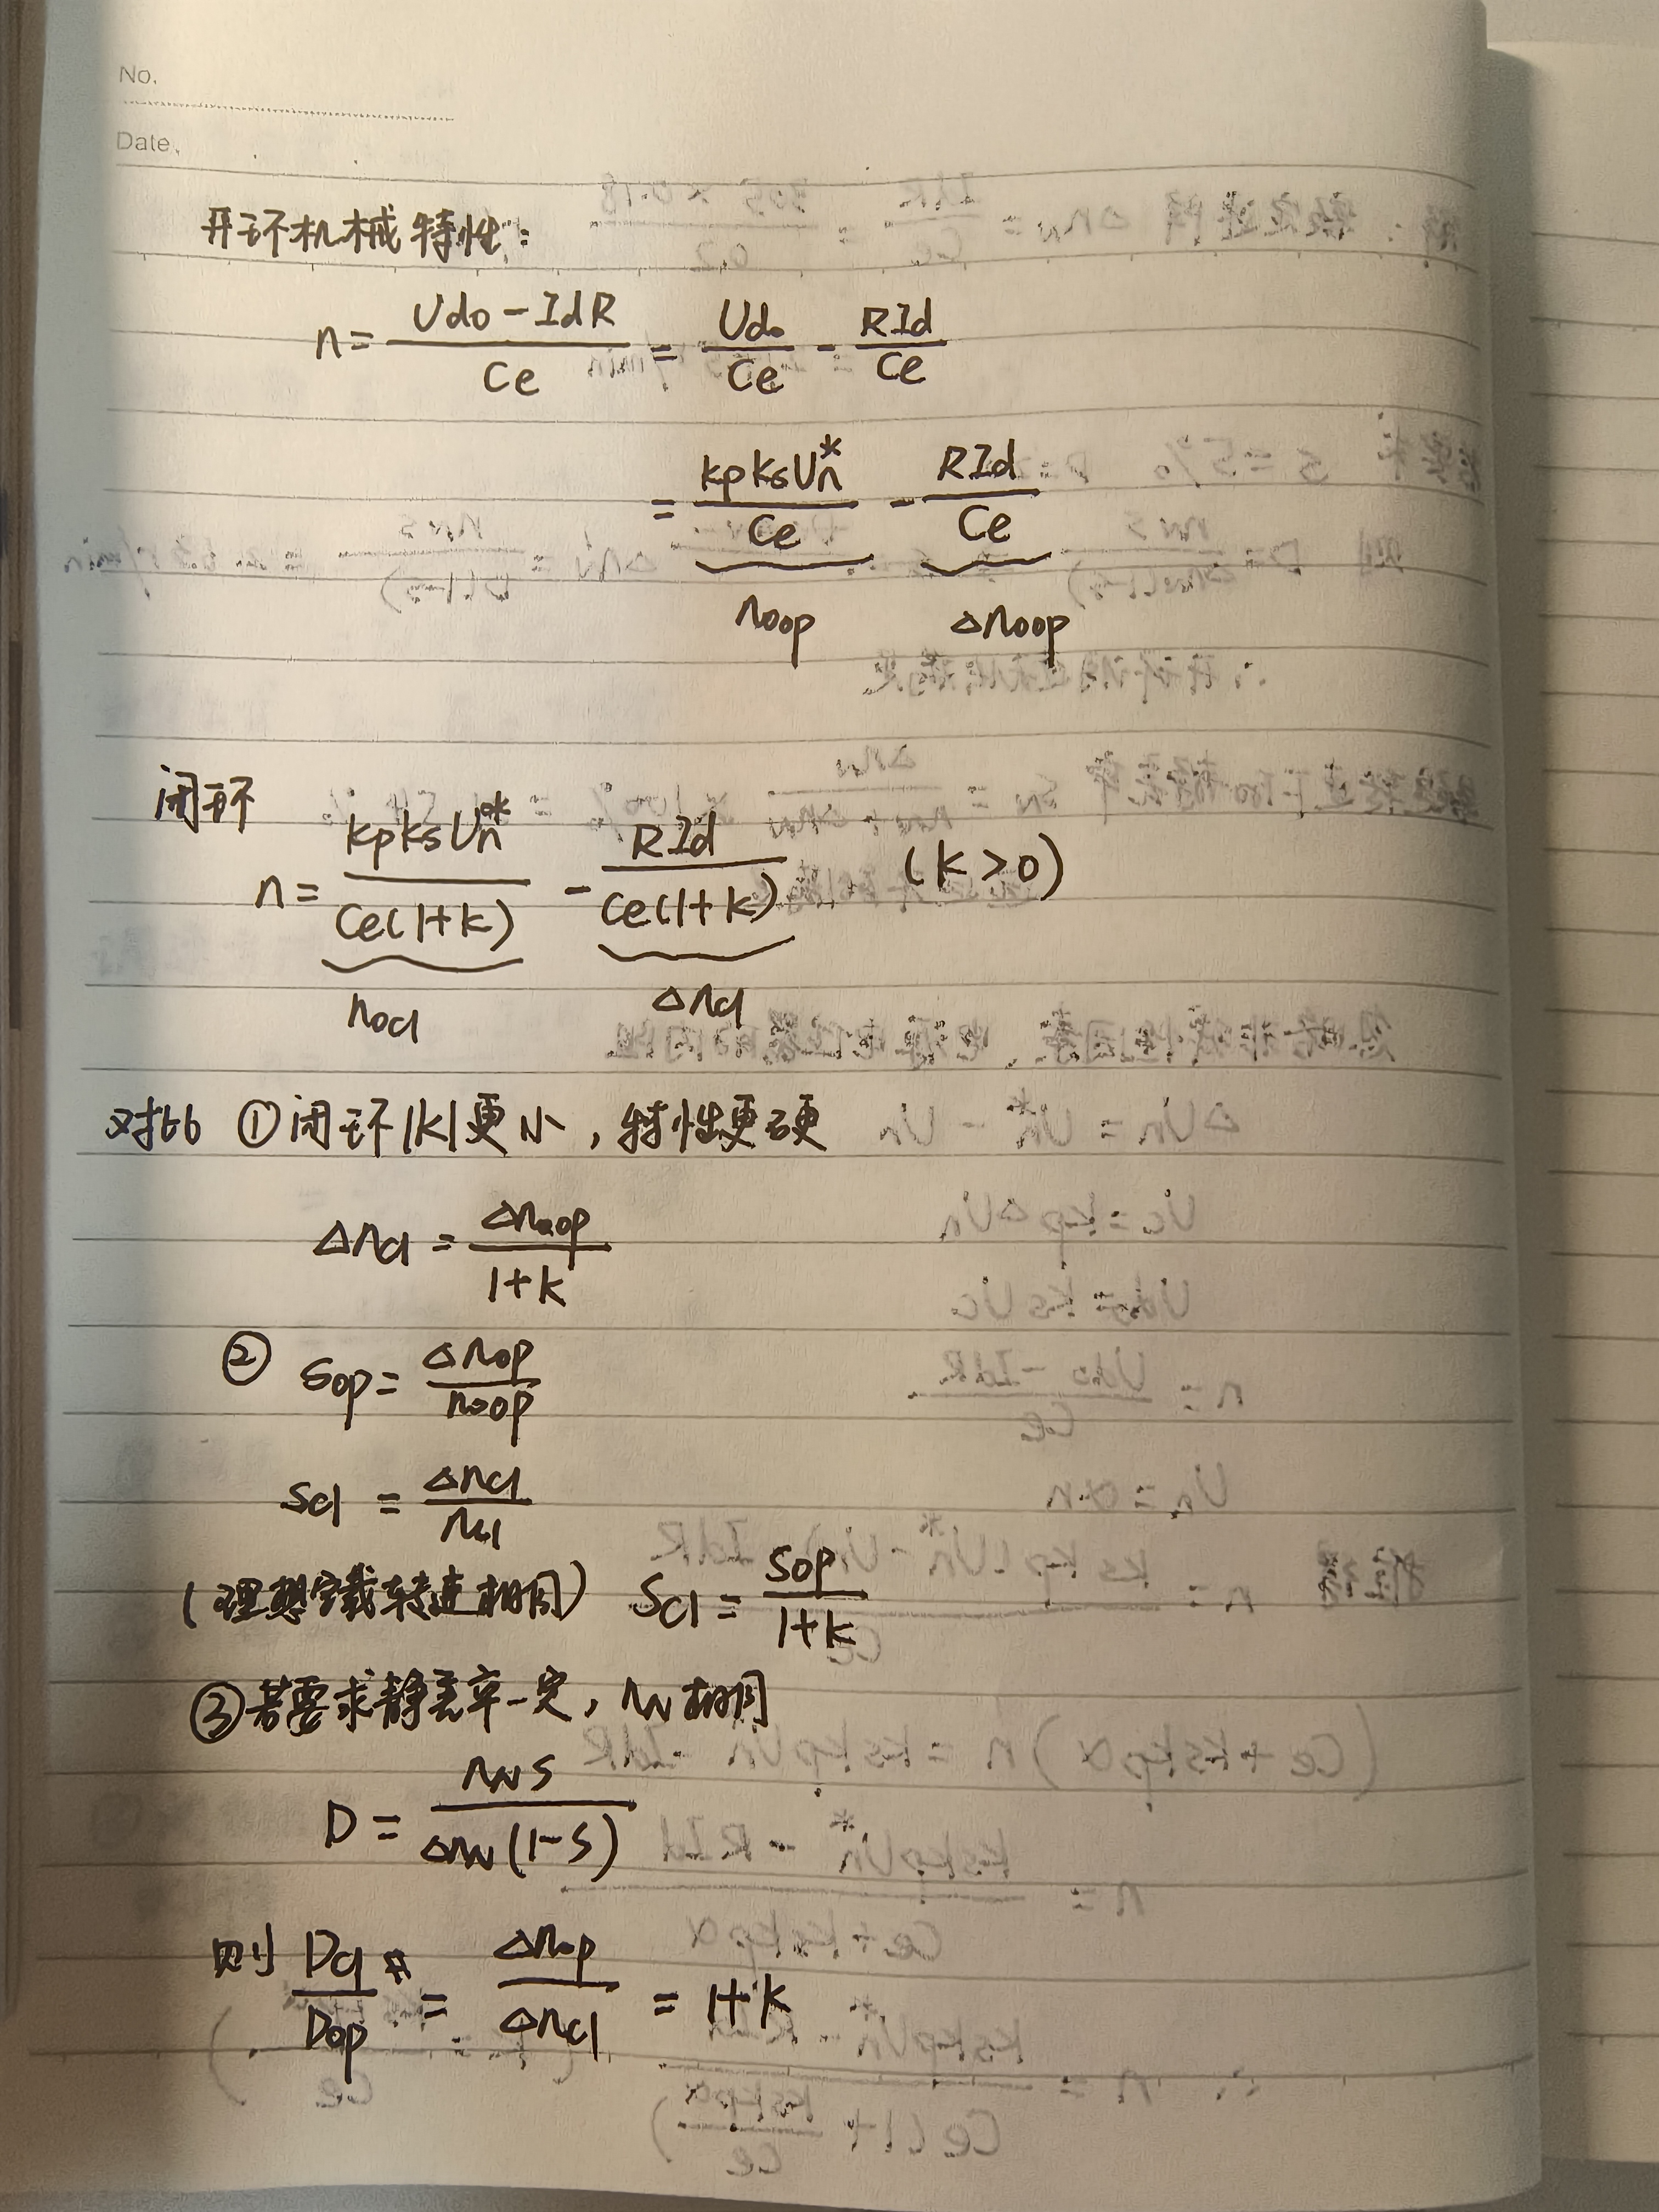 No.
Date.
开环机械特性:
n = (Udo - IdR)/Ce = Udo/Ce - RId/Ce
= kpksUn*/Ce - RId/Ce
noop  Δnoop
闭环
n = kpksUn*/(Ce(1+k)) - RId/(Ce(1+k))  (k>0)
nocl  Δncl
对比 ①闭环|k|更小,特性更硬
Δncl = Δnop/(1+k)
② Sop = Δnop/noop
Scl = Δncl/ncl
(理想空载转速相同) Scl = Sop/(1+k)
③若要求静差率一定, nN相同
D = nNS/(ΔnN(1-S))
则 Dcl/Dop = Δnop/Δncl = 1+k